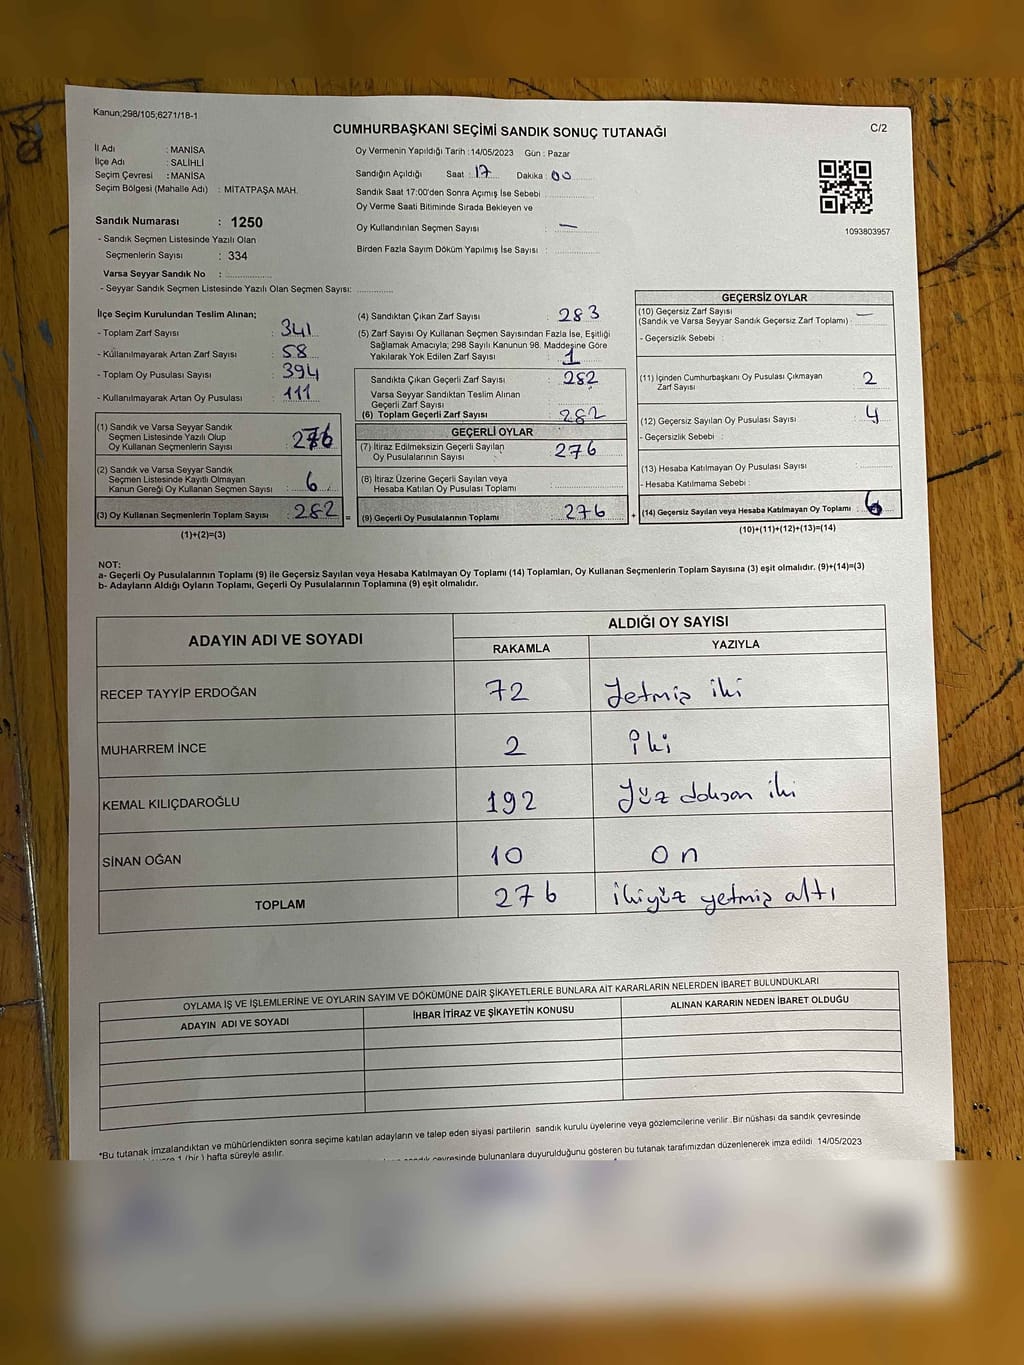 Kanun;298/105;6271/18-1
CUMHURBAŞKANI SEÇİMİ SANDIK SONUÇ TUTANAĞI
C/2
İl Adı : MANİSA
İlçe Adı : SALİHLİ
Seçim Çevresi : MANİSA
Seçim Bölgesi (Mahalle Adı) : MİTATPAŞA MAH.
Sandık Numarası : 1250
- Sandık Seçmen Listesinde Yazılı Olan
Seçmenlerin Sayısı : 334
Varsa Seyyar Sandık No :
- Seyyar Sandık Seçmen Listesinde Yazılı Olan Seçmen Sayısı:
Oy Vermenin Yapıldığı Tarih :14/05/2023 Gün : Pazar
Sandığın Açıldığı Saat : 17 Dakika : 00
Sandık Saat 17:00'den Sonra Açımış İse Sebebi :
Oy Verme Saati Bitiminde Sırada Bekleyen ve
Oy Kullandırılan Seçmen Sayısı : —
Birden Fazla Sayım Döküm Yapılmış İse Sayısı :
1093803957
İlçe Seçim Kurulundan Teslim Alınan;
- Toplam Zarf Sayısı : 341
- Kullanılmayarak Artan Zarf Sayısı : 58
- Toplam Oy Pusulası Sayısı : 394
- Kullanılmayarak Artan Oy Pusulası : 111
(1) Sandık ve Varsa Seyyar Sandık
Seçmen Listesinde Yazılı Olup
Oy Kullanan Seçmenlerin Sayısı : 276
(2) Sandık ve Varsa Seyyar Sandık
Seçmen Listesinde Kayıtlı Olmayan
Kanun Gereği Oy Kullanan Seçmen Sayısı : 6
(3) Oy Kullanan Seçmenlerin Toplam Sayısı : 282 =
(1)+(2)=(3)
(4) Sandıktan Çıkan Zarf Sayısı : 283
(5) Zarf Sayısı Oy Kullanan Seçmen Sayısından Fazla İse, Eşitliği
Sağlamak Amacıyla; 298 Sayılı Kanunun 98. Maddesine Göre
Yakılarak Yok Edilen Zarf Sayısı : 1
Sandıkta Çıkan Geçerli Zarf Sayısı : 282
Varsa Seyyar Sandıktan Teslim Alınan
Geçerli Zarf Sayısı :
(6) Toplam Geçerli Zarf Sayısı : 282
GEÇERLİ OYLAR
(7) İtiraz Edilmeksizin Geçerli Sayılan
Oy Pusulalarının Sayısı : 276
(8) İtiraz Üzerine Geçerli Sayılan veya
Hesaba Katılan Oy Pusulası Toplamı :
(9) Geçerli Oy Pusulalarının Toplamı : 276 +
GEÇERSİZ OYLAR
(10) Geçersiz Zarf Sayısı
(Sandık ve Varsa Seyyar Sandık Geçersiz Zarf Toplamı) : —
- Geçersizlik Sebebi :
(11) İçinden Cumhurbaşkanı Oy Pusulası Çıkmayan
Zarf Sayısı : 2
(12) Geçersiz Sayılan Oy Pusulası Sayısı : 4
- Geçersizlik Sebebi :
(13) Hesaba Katılmayan Oy Pusulası Sayısı :
- Hesaba Katılmama Sebebi :
(14) Geçersiz Sayılan veya Hesaba Katılmayan Oy Toplamı : 6
(10)+(11)+(12)+(13)=(14)
NOT:
a- Geçerli Oy Pusulalarının Toplamı (9) ile Geçersiz Sayılan veya Hesaba Katılmayan Oy Toplamı (14) Toplamları, Oy Kullanan Seçmenlerin Toplam Sayısına (3) eşit olmalıdır. (9)+(14)=(3)
b- Adayların Aldığı Oyların Toplamı, Geçerli Oy Pusulalarının Toplamına (9) eşit olmalıdır.
ADAYIN ADI VE SOYADI
ALDIĞI OY SAYISI
RAKAMLA YAZIYLA
RECEP TAYYİP ERDOĞAN 72 Yetmiş iki
MUHARREM İNCE 2 iki
KEMAL KILIÇDAROĞLU 192 Yüz doksan iki
SİNAN OĞAN 10 On
TOPLAM 276 ikiyüz yetmiş altı
OYLAMA İŞ VE İŞLEMLERİNE VE OYLARIN SAYIM VE DÖKÜMÜNE DAİR ŞİKAYETLERLE BUNLARA AİT KARARLARIN NELERDEN İBARET BULUNDUKLARI
ADAYIN ADI VE SOYADI İHBAR İTİRAZ VE ŞİKAYETİN KONUSU ALINAN KARARIN NEDEN İBARET OLDUĞU
*Bu tutanak imzalandıktan ve mühürlendikten sonra seçime katılan adayların ve talep eden siyasi partilerin sandık kurulu üyelerine veya gözlemcilerine verilir. Bir nüshası da sandık çevresinde
1 (bir) hafta süreyle asılır.
çevresinde bulunanlara duyurulduğunu gösteren bu tutanak tarafımızdan düzenlenerek imza edildi 14/05/2023